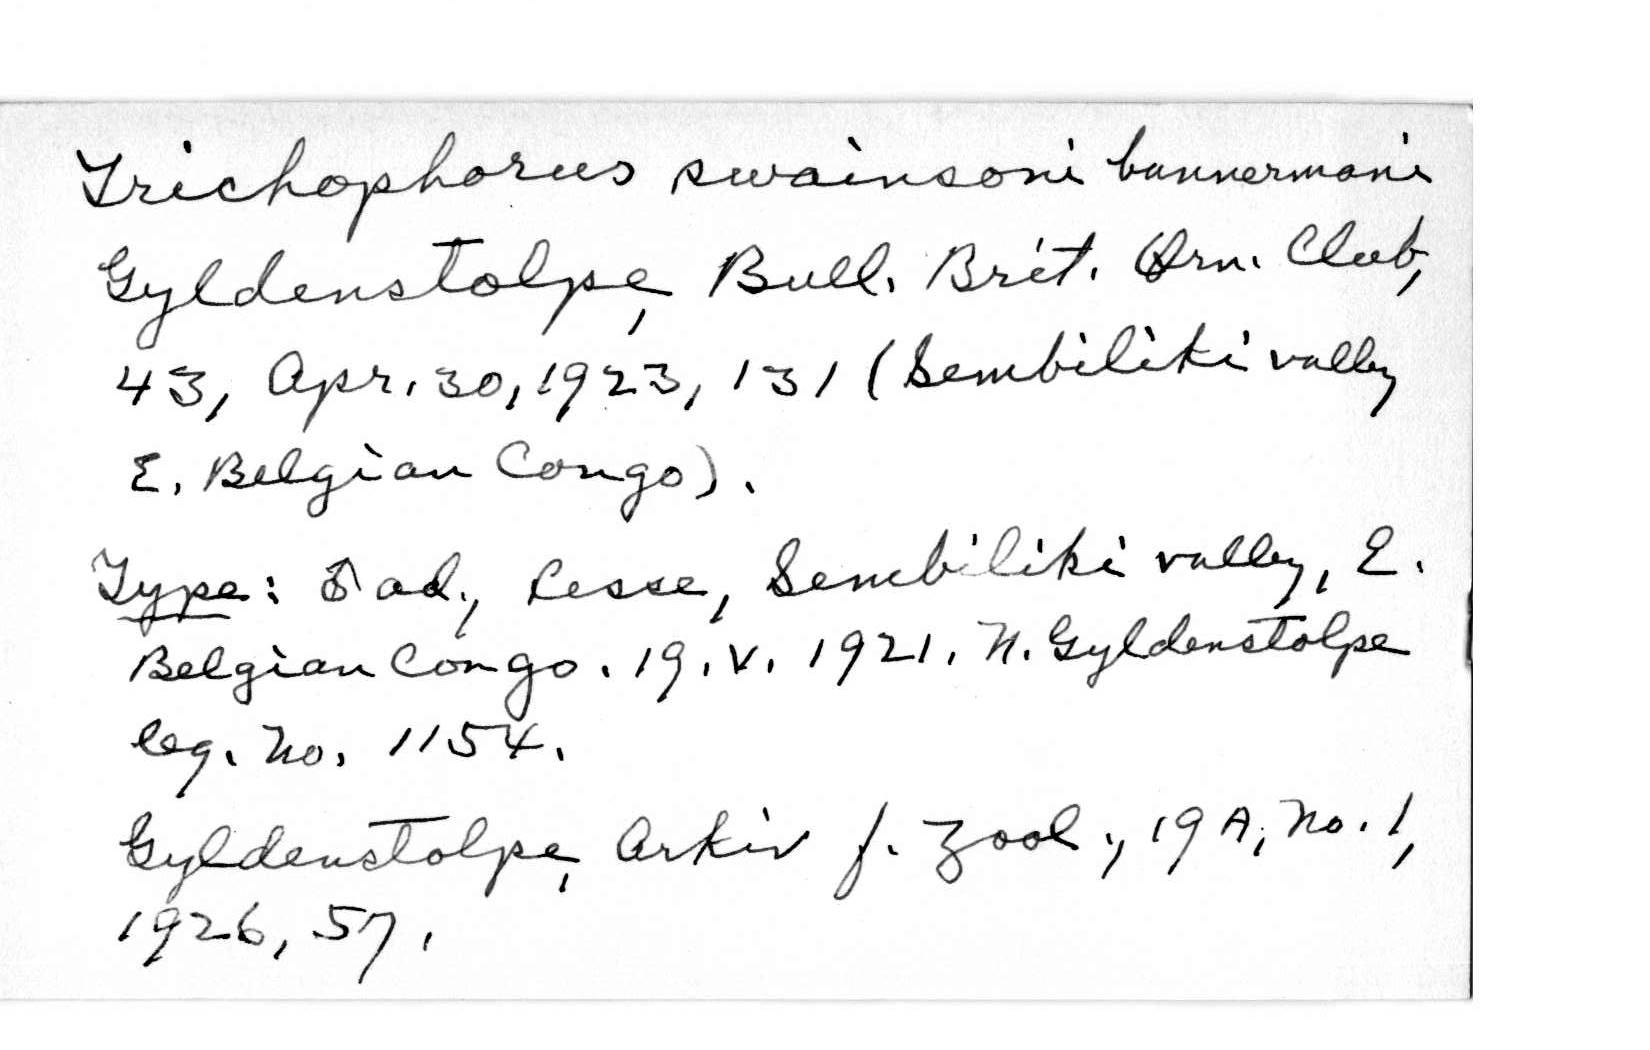 Trichophorus swainsoni bannermani
Gyldenstolpe, Bull. Brit. Orn. Club,
43, Apr. 30, 1923, 131 (Sembiliki valley
E. Belgian Congo).
Type: ♂ ad., Lesse, Sembiliki valley, E.
Belgian Congo. 19. V. 1921. N. Gyldenstolpe
leg. No. 1154.
Gyldenstolpe, Arkiv f. Zool., 19A, No. 1,
1926, 57.